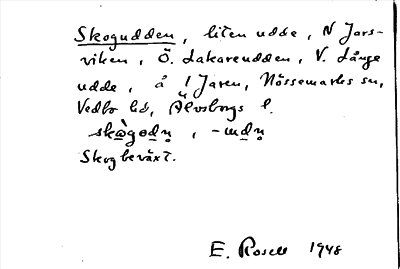 Skogudden, liten udde, N Jars-
viken, Ö. Lakareudden, V. Långe
udde, å l Jaren, Nössemarks sn,
Vedbo hd, Älvsborgs l.
skògodn̥, -udn̥
Skogbeväxt.
E. Rosell 1948